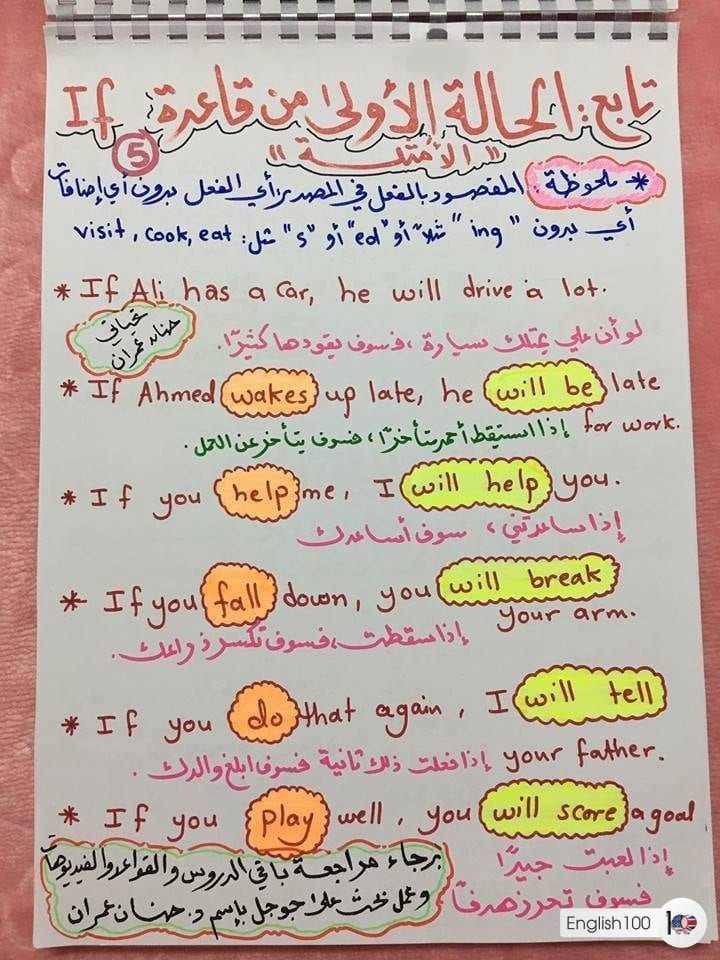 تابع: الحالة الأولى من قاعدة If
"الأمثلة"
5
* ملحوظة: المقصود بالفعل في المصدر: أي الفعل بدون أي إضافات
أي بدون "ing" مثلاً أو "ed" أو "s" مثل: visit, cook, eat
* If Ali has a car, he will drive a lot.
تحياتي
حنان عمران
لو أن علي يمتلك سيارة، فسوف يقودها كثيرًا.
* If Ahmed wakes up late, he will be late
for work. إذا استيقظ أحمد متأخرًا، فسوف يتأخر عن العمل.
* If you help me, I will help you.
إذا ساعدتني، سوف أساعدك
* If you fall down, you will break
your arm. إذا سقطت، فسوف تكسر ذراعك.
* If you do that again, I will tell
your father. إذا فعلت ذلك ثانية فسوف ابلغ والدك.
* If you play well, you will score a goal
إذا لعبت جيدًا
فسوف تحرز هدفًا
برجاء مراجعة باقي الدروس والقواعد والفيديوهات
وعمل بحث على جوجل بإسم د. حنان عمران
English100